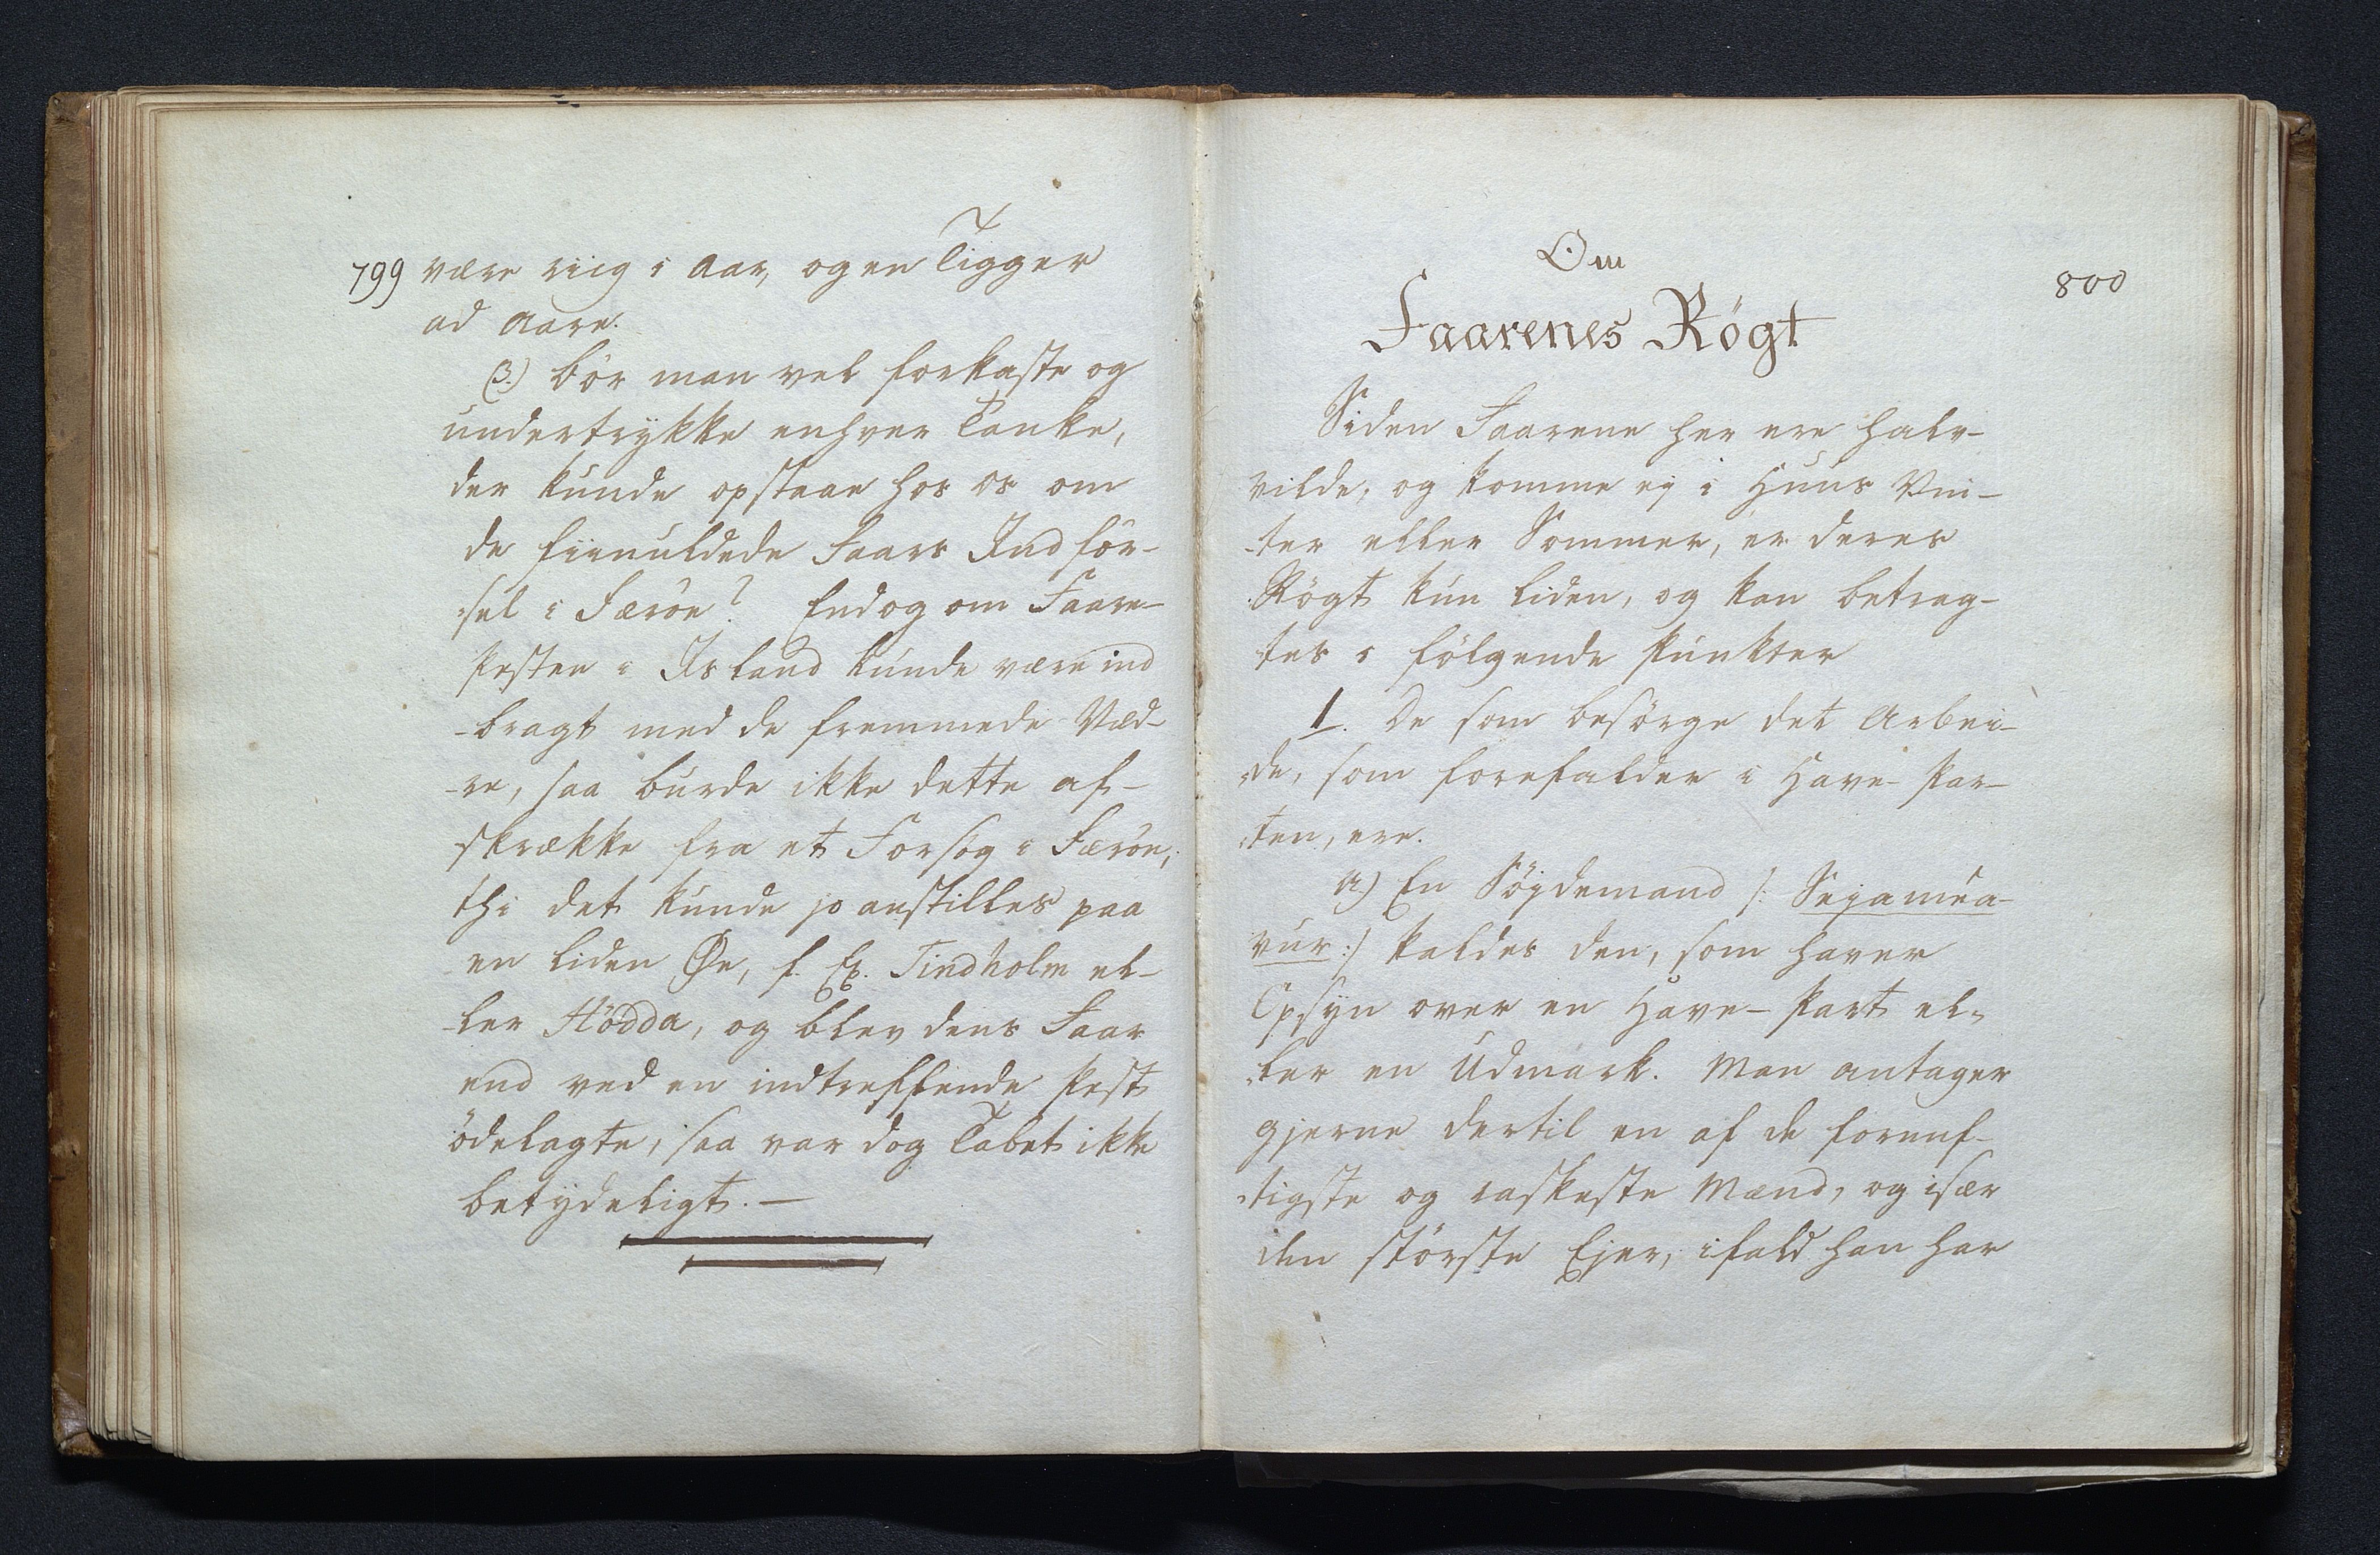 799 være riig i Aar, og en Tigger
ad Aare.
β.) bör man vel forkaste og
undertrykke enhver Tanke,
der kunde opstaae hos os om
de fiinuldede Faars Indför-
-sel i Færøe? Endog om Faare-
Pesten i Island kunde være ind
-bragt med de fremmede Væd-
-re, saa burde ikke dette af-
skrække fra et Forsøg i Færöe;
thi det kunde jo anstilles paa
en liden Øe, f. Ex. Tindholm el-
-ler Hödda, og blev dens Faar
end ved en indtreffende Pest
ödelagte, saa var dog Tabet ikke
betydeligt. —
800
Om
Faarenes Rögt
Siden Faarene her ere halv-
vilde, og komme ej i Huus Vin-
-ter eller Sommer, er deres
Rögt kun liden, og kan betrag-
tes i fölgende Punkter
1. De som besörge det Arbei-
-de, som forefalder i Have-Par-
-ten, ere.
a.) En Söydemand /: Sejaméa-
vur :/ kaldes den, som haver
Opsyn over en Have-Part el-
-ler en Udmark. Man antager
gjerne dertil en af de fornuf-
-tigste og raskeste Mænd, og især
den störste Ejer, ifald han har